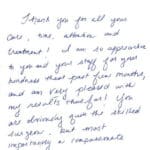 Thank you for all your
care, time, attention and
treatment! I am so appreciative
to you and your staff for your
kindness these past few months,
and am very pleased with
my results thus far! You
are obviously quite the skilled
surgeon, but most
importantly a compassionate